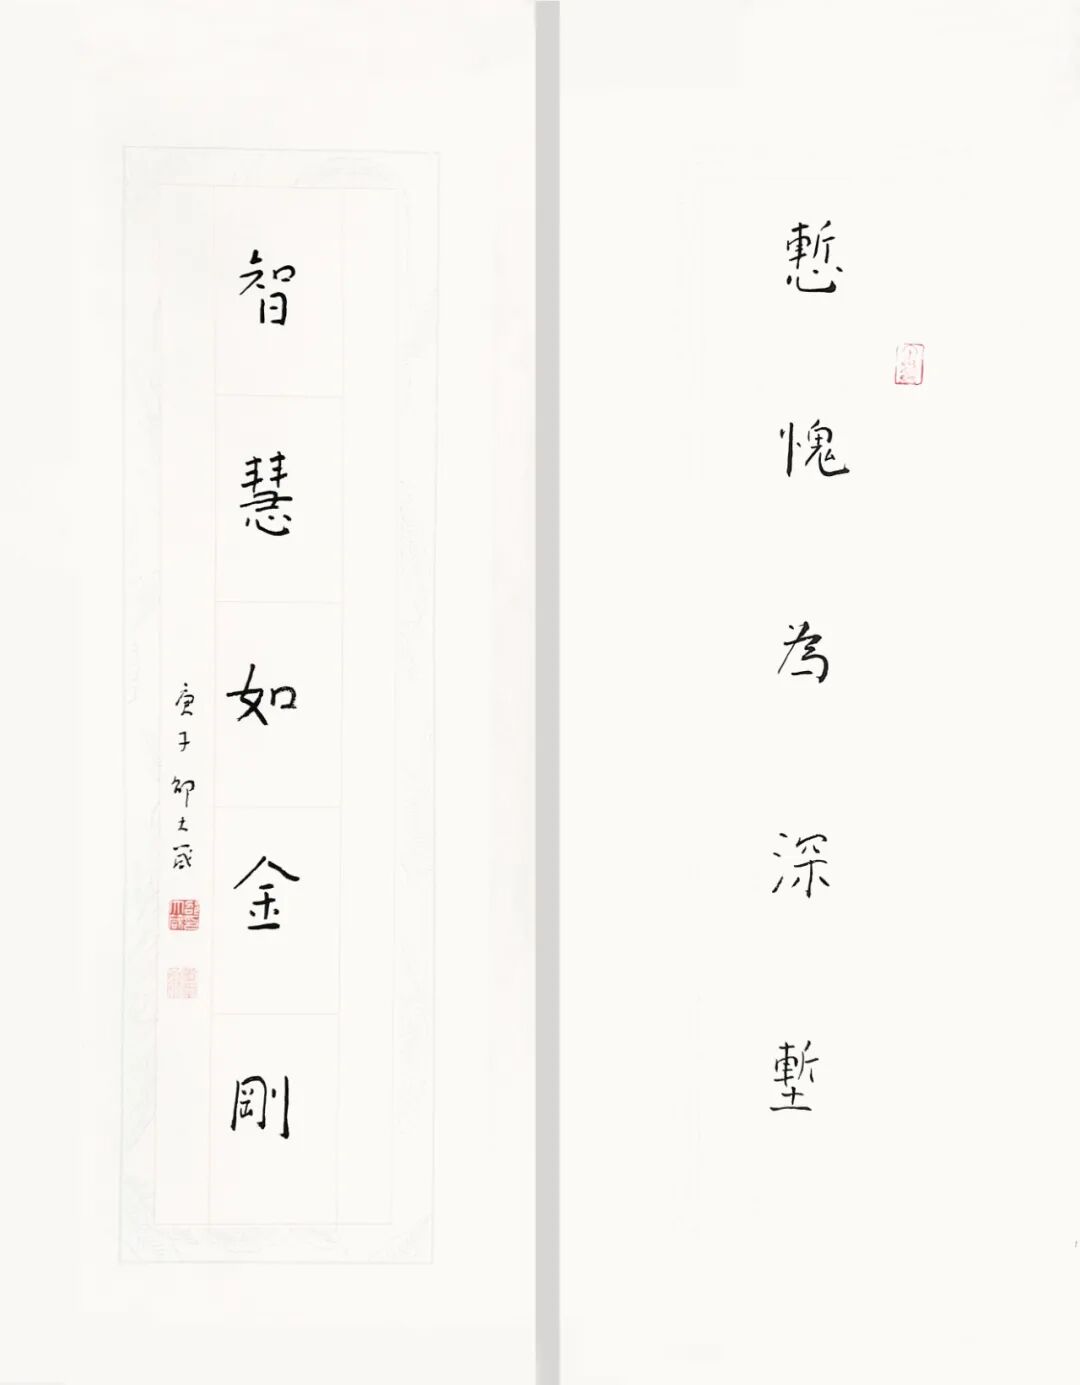 慙愧為深塹
智慧如金剛
庚子邵大箴